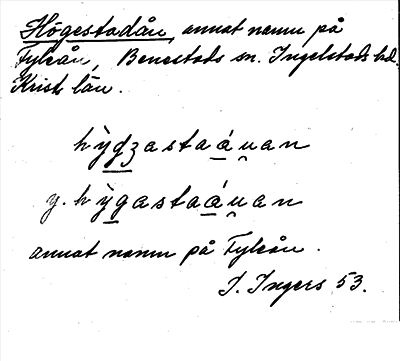 Högestadån, annat namn på
Fyleån, Benestads sn. Ingelstads hd.
Krist. län.
hỳdʒastaáu̯an
y. hỳgastaáu̯an
annat namn på Fyleån.
I. Ingers 53.